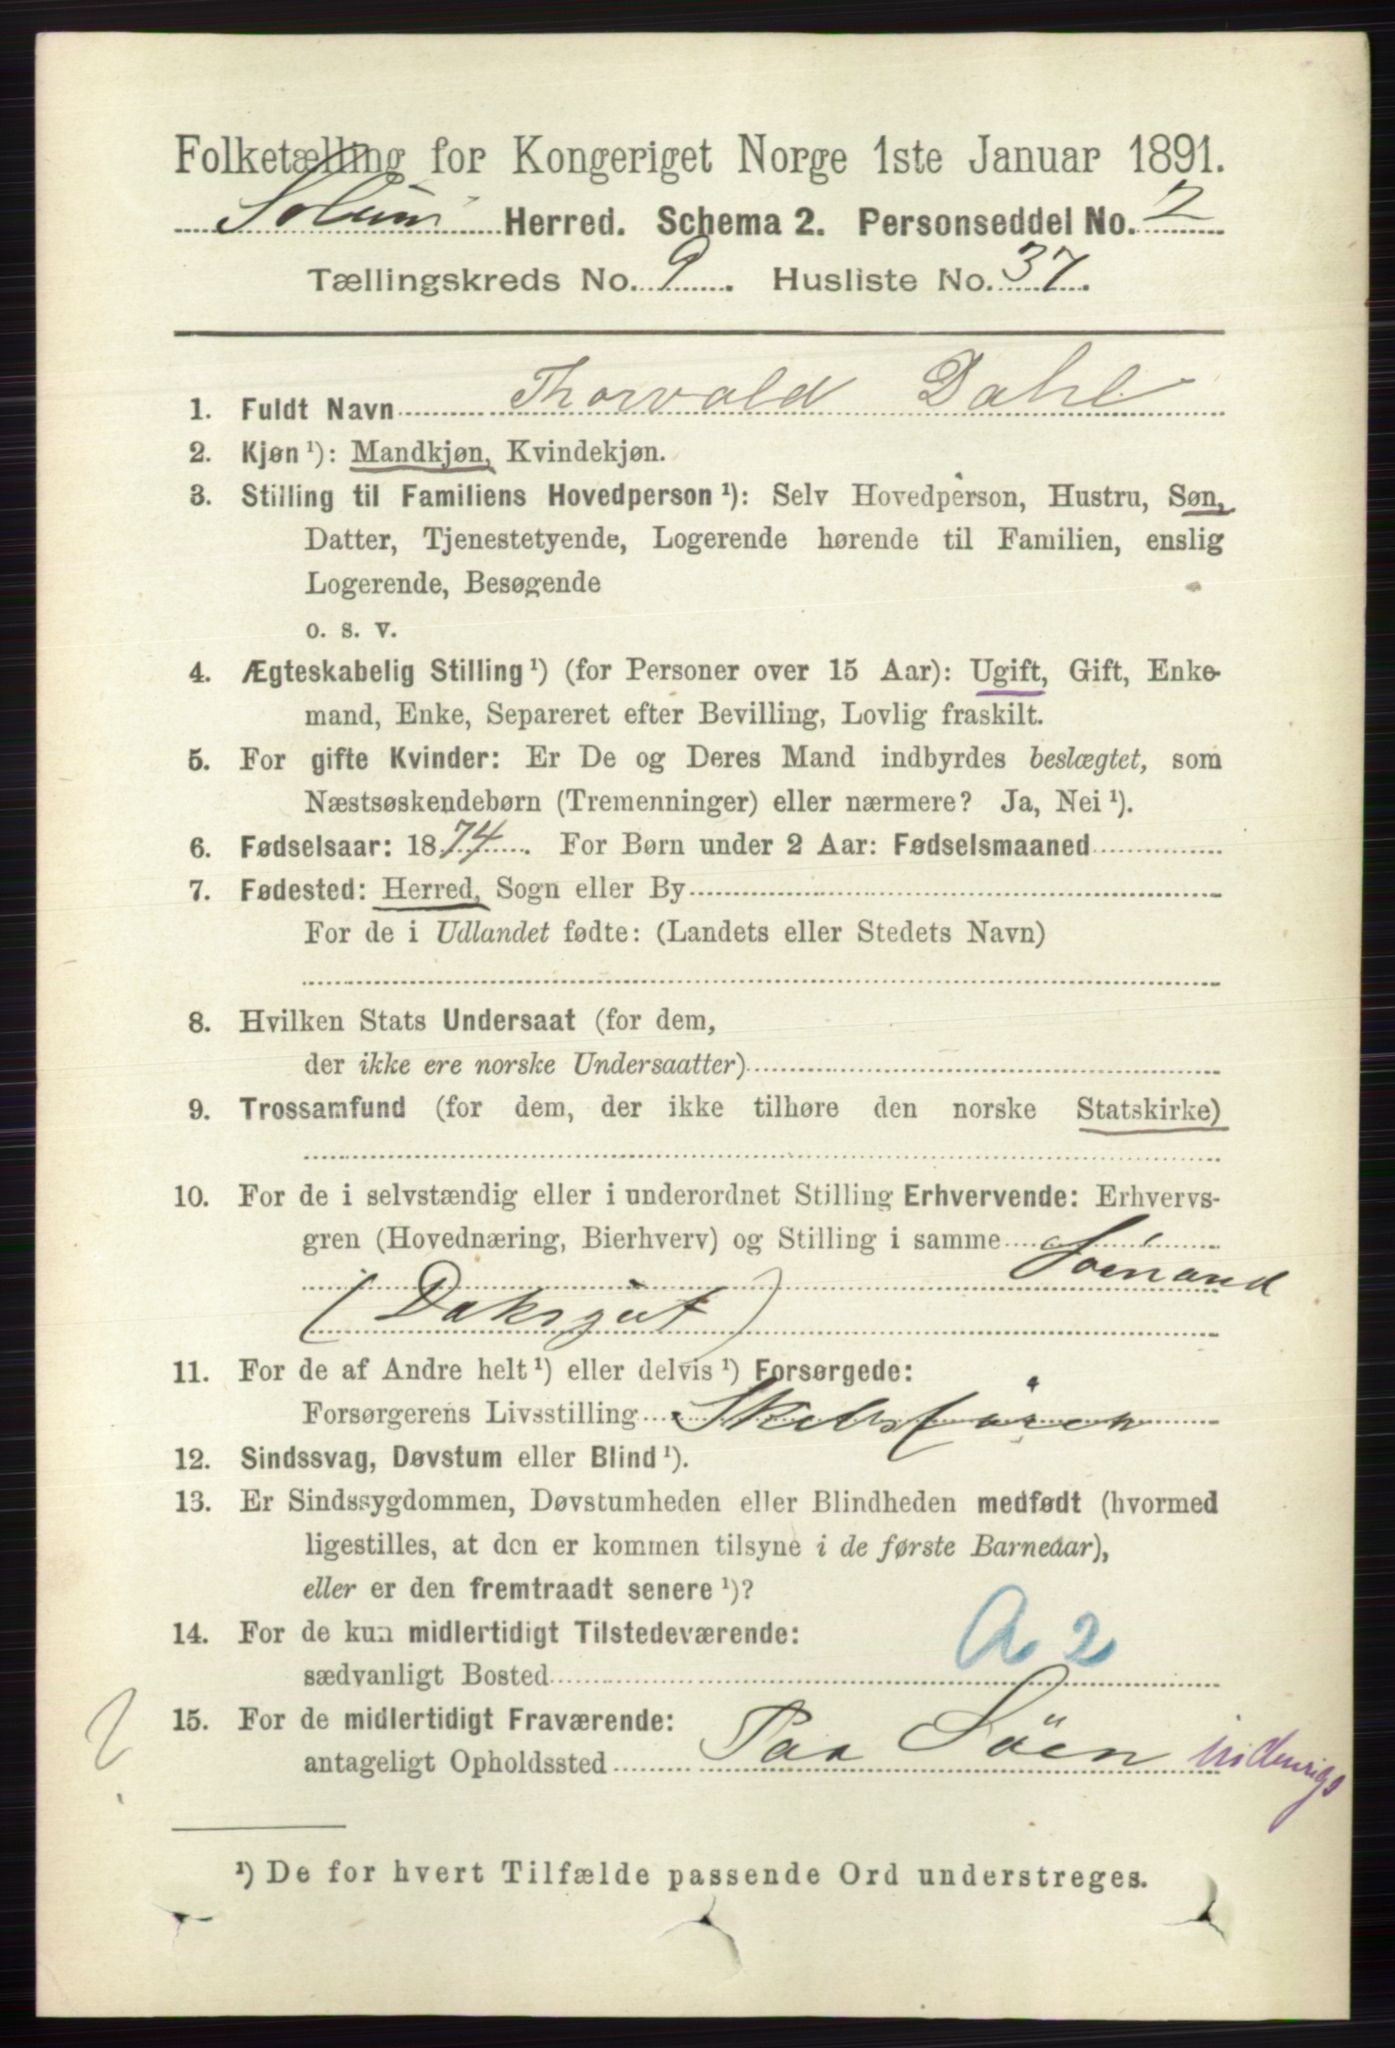 Folketælling for Kongeriget Norge 1ste Januar 1891.
Solum Herred. Schema 2. Personseddel No. 2
Tællingskreds No. 9. Husliste No. 37.
1. Fuldt Navn Thorvald Dahl
2. Kjøn¹): Mandkjøn, Kvindekjøn.
3. Stilling til Familiens Hovedperson¹): Selv Hovedperson, Hustru, Søn,
Datter, Tjenestetyende, Logerende hørende til Familien, enslig
Logerende, Besøgende
o. s. v.
4. Ægteskabelig Stilling¹) (for Personer over 15 Aar): Ugift, Gift, Enke-
mand, Enke, Separeret efter Bevilling, Lovlig fraskilt.
5. For gifte Kvinder: Er De og Deres Mand indbyrdes beslægtet, som
Næstsøskendebørn (Tremenninger) eller nærmere? Ja, Nei¹).
6. Fødselsaar: 1874. For Børn under 2 Aar: Fødselsmaaned
7. Fødested: Herred, Sogn eller By
For de i Udlandet fødte: (Landets eller Stedets Navn)
8. Hvilken Stats Undersaat (for dem,
der ikke ere norske Undersaatter)
9. Trossamfund (for dem, der ikke tilhøre den norske Statskirke)
10. For de i selvstændig eller i underordnet Stilling Erhvervende: Erhvervs-
gren (Hovednæring, Bierhverv) og Stilling i samme Sömand
(Daksgut)
11. For de af Andre helt¹) eller delvis¹) Forsørgede:
Forsørgerens Livsstilling
12. Sindssvag, Døvstum eller Blind¹).
13. Er Sindssygdommen, Døvstumheden eller Blindheden medfødt (hvormed
ligestilles, at den er kommen tilsyne i de første Barneaar),
eller er den fremtraadt senere¹)?
14. For de kun midlertidigt Tilstedeværende:
sædvanligt Bosted A 2
15. For de midlertidigt Fraværende:
antageligt Opholdssted Paa Söen indenrigs
¹) De for hvert Tilfælde passende Ord understreges.